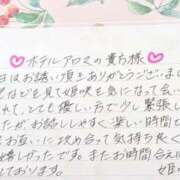 ホテルアロマの貴方様
日はお誘い頂きありがとうございまし
などを見て姫咲を気になって会い
とても優しい方で少し緊張し
たが、お話ししやすく楽しい時間で
お互いに攻め合って気持ち良く
嬉しかったです。またお時間合えば
ております。
姫